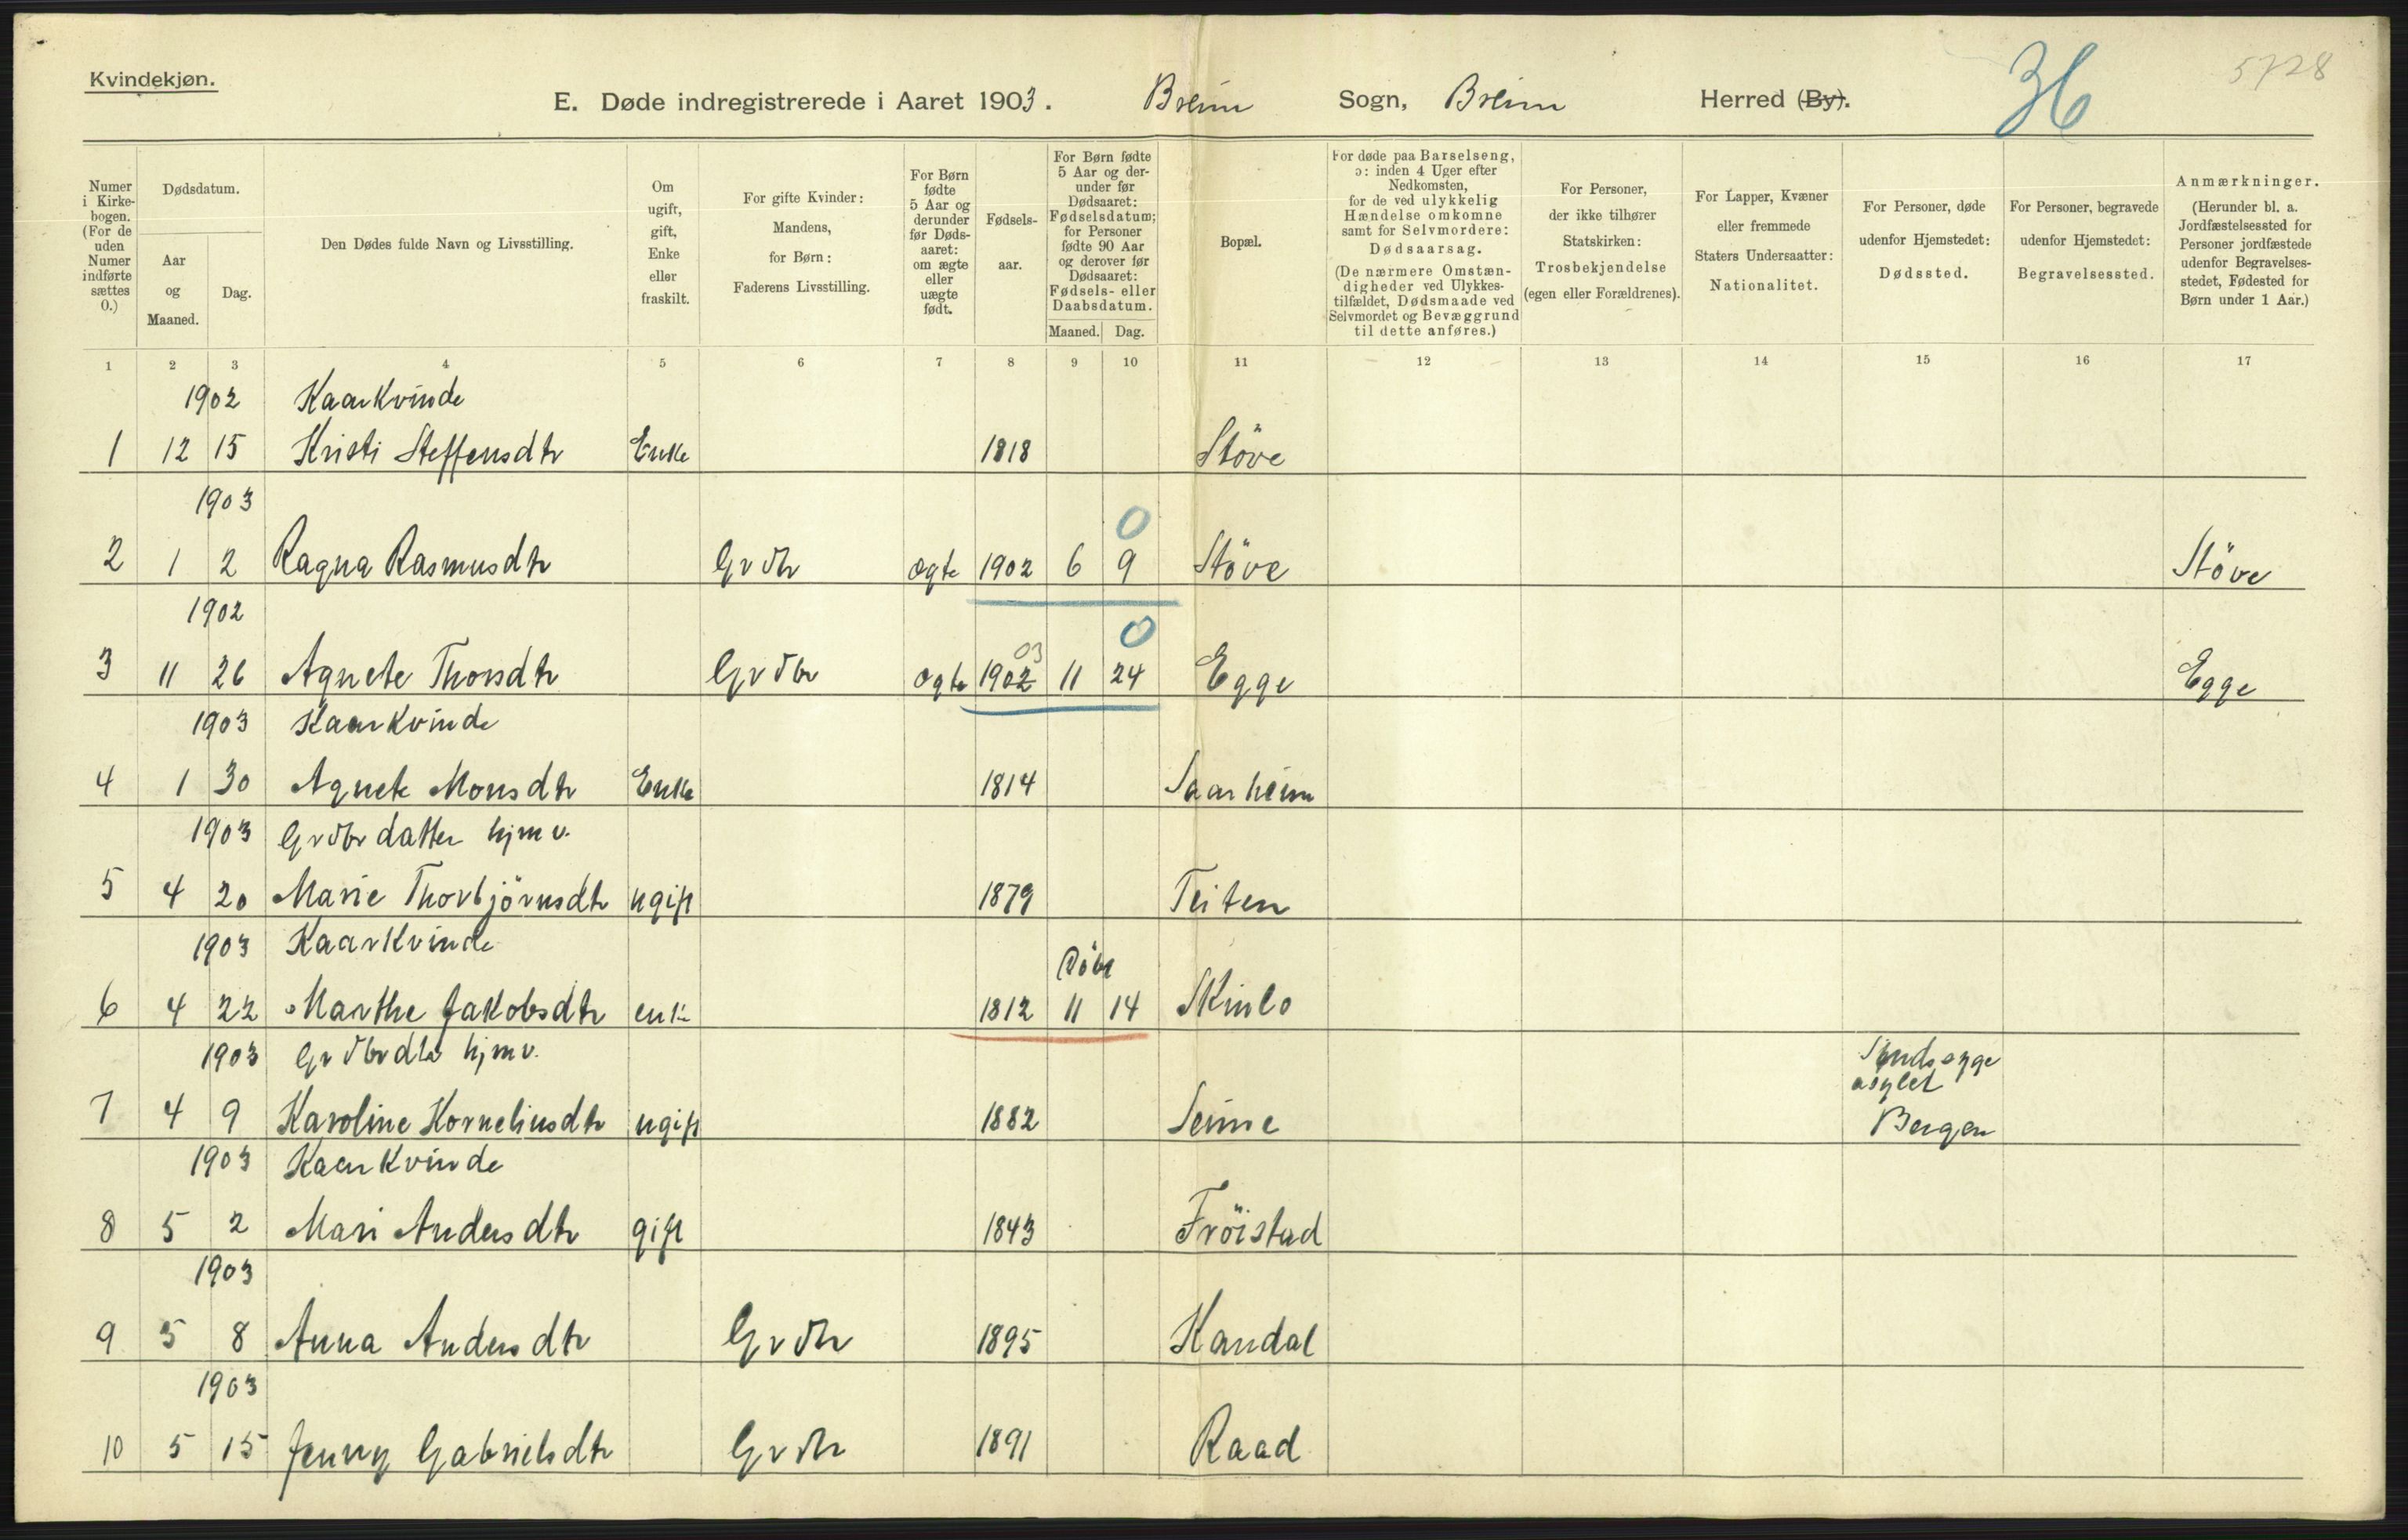 Kvindekjøn.
E. Døde indregistrerede i Aaret 1903. Breim Sogn, Breim Herred (By).
36
5728
Numer i Kirkebogen. (For de uden Numer indførte sættes 0.)
Dødsdatum.
Aar og Maaned.
Dag.
Den Dødes fulde Navn og Livsstilling.
Om ugift, gift, Enke eller fraskilt.
For gifte Kvinder: Mandens, for Børn: Faderens Livsstilling.
For Børn fødte 5 Aar og derunder før Dødsaaret: om ægte eller uægte født.
Fødselsaar.
For Børn fødte 5 Aar og derunder før Dødsaaret: Fødselsdatum; for Personer fødte 90 Aar og derover før Dødsaaret: Fødsels- eller Daabsdatum.
Maaned. Dag.
Bopæl.
For døde paa Barselseng, ɔ: inden 4 Uger efter Nedkomsten, for de ved ulykkelig Hændelse omkomne samt for Selvmordere: Dødsaarsag. (De nærmere Omstændigheder ved Ulykkestilfældet, Dødsmaade ved Selvmordet og Bevæggrund til dette anføres.)
For Personer, der ikke tilhører Statskirken: Trosbekjendelse (egen eller Forældrenes).
For Lapper, Kvæner eller fremmede Staters Undersaatter: Nationalitet.
For Personer, døde udenfor Hjemstedet: Dødssted.
For Personer, begravede udenfor Hjemstedet: Begravelsessted.
Anmærkninger. (Herunder bl. a. Jordfæstelsessted for Personer jordfæstede udenfor Begravelsesstedet, Fødested for Børn under 1 Aar.)
1 2 3 4 5 6 7 8 9 10 11 12 13 14 15 16 17
1902 Kaarkvinde
1 12 15 Kristi Steffensdtr Enke 1818 Støve
1903 0
2 1 2 Ragna Rasmusdtr Grdbr ægte 1902 6 9 Støve Støve
1902 03 0
3 11 26 Agnete Thorsdtr Grdbr ægte 1902 11 24 Egge Egge
1903 Kaarkvinde
4 1 30 Agnete Monsdtr Enke 1814 Saarheim
1903 Grdbrdatter hjmv.
5 4 20 Marie Thorbjörnsdtr ugift 1879 Teiten
1903 Kaarkvinde Döbt
6 4 22 Marthe Jakobsdtr enke 1812 11 14 Skinlo
1903 Grdbrdtr hjmv. Sindsyge asylet
7 4 9 Karoline Korneliusdtr ugift 1882 Seime Bergen
1903 Kaarkvinde
8 5 2 Mari Andersdtr gift 1843 Fröistad
1903
9 5 8 Anna Andersdtr Grdbr 1895 Kandal
1903
10 5 15 Jenny Gabrielsdtr Grdbr 1891 Raad